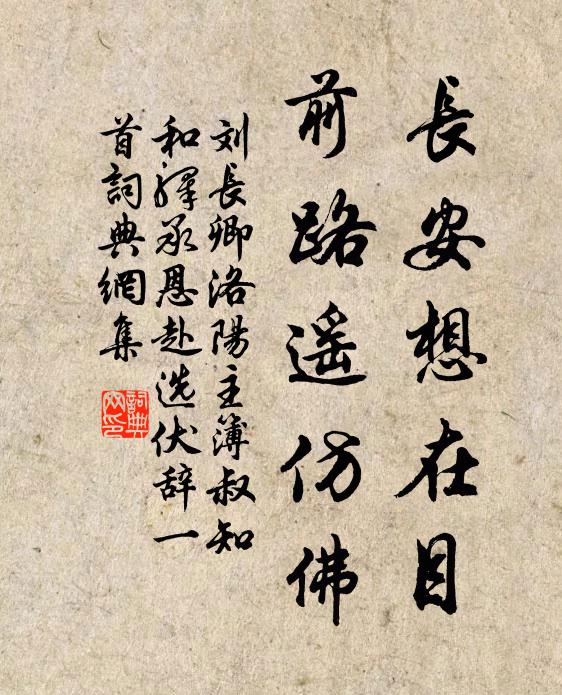 長安想在目
前路遥仿佛
刘長卿洛陽主簿叔知
和驛承恩赴选伏辞一
首詞典網集
詞典
网印